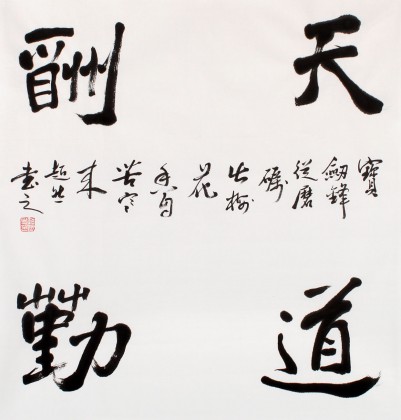 天道
酬勤
寶
劍鋒
從磨
礪
出梅
花
香自
苦寒
来
超然
書之